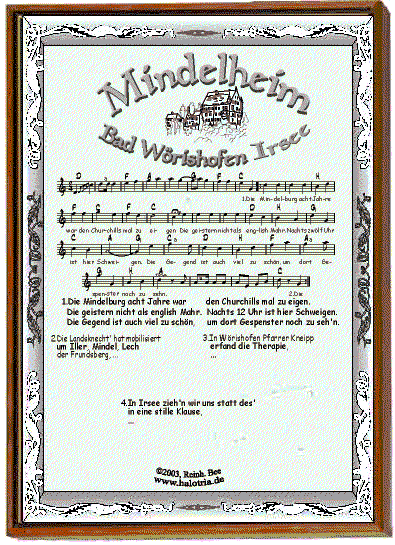 Mindelheim
Bad Wörishofen Irsee
1.Die Min-del-burg acht Jah-re
war den Chur-chills mal zu ei- gen Die gei-stern nicht als eng-lish Mahr. Nachts zwölf Uhr
ist hier Schwei- gen. Die Ge- gend ist auch viel zu schön, um dort Ge-
spen-ster noch zu sehn. 2.Die
1.Die Mindelburg acht Jahre war den Churchills mal zu eigen.
Die geistern nicht als english Mahr. Nachts 12 Uhr ist hier Schweigen.
Die Gegend ist auch viel zu schön, um dort Gespenster noch zu seh'n.
2.Die Landsknecht' hat mobilisiert
um Iller, Mindel, Lech
der Frundsberg, ...
3.In Wörishofen Pfarrer Kneipp
erfand die Therapie,
...
4.In Irsee zieh'n wir uns statt des'
in eine stille Klause,
...
©2003, Reinh. Bee
www.halotria.de